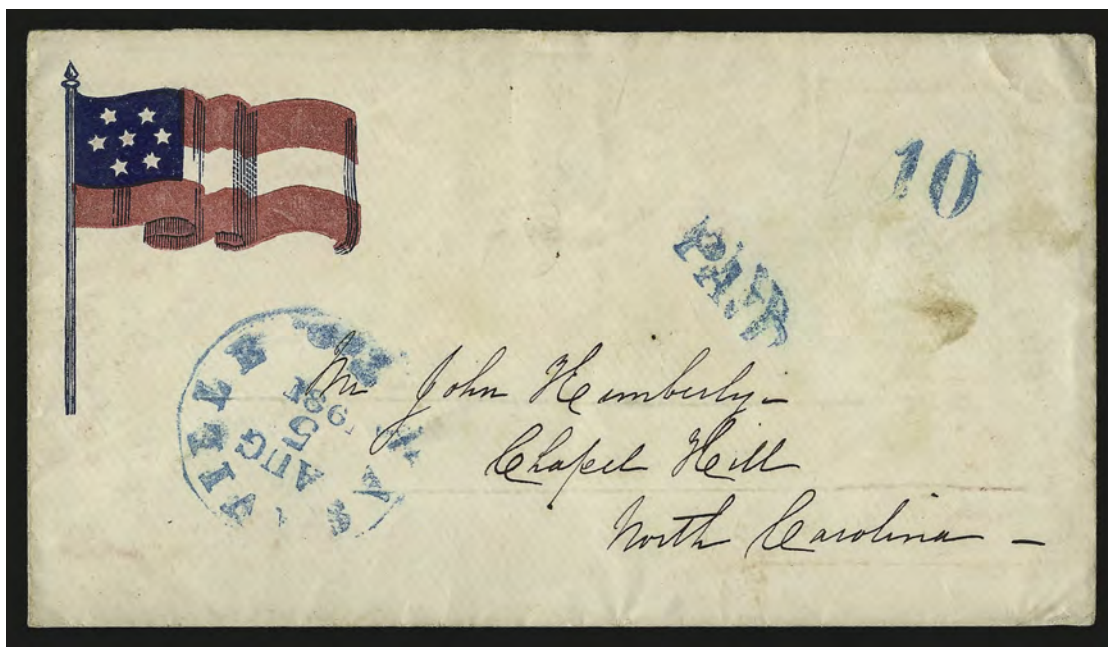 10
PAID
VILLE
AUG
5
Mr John Kimberly -
Chapel Hill
North Carolina -